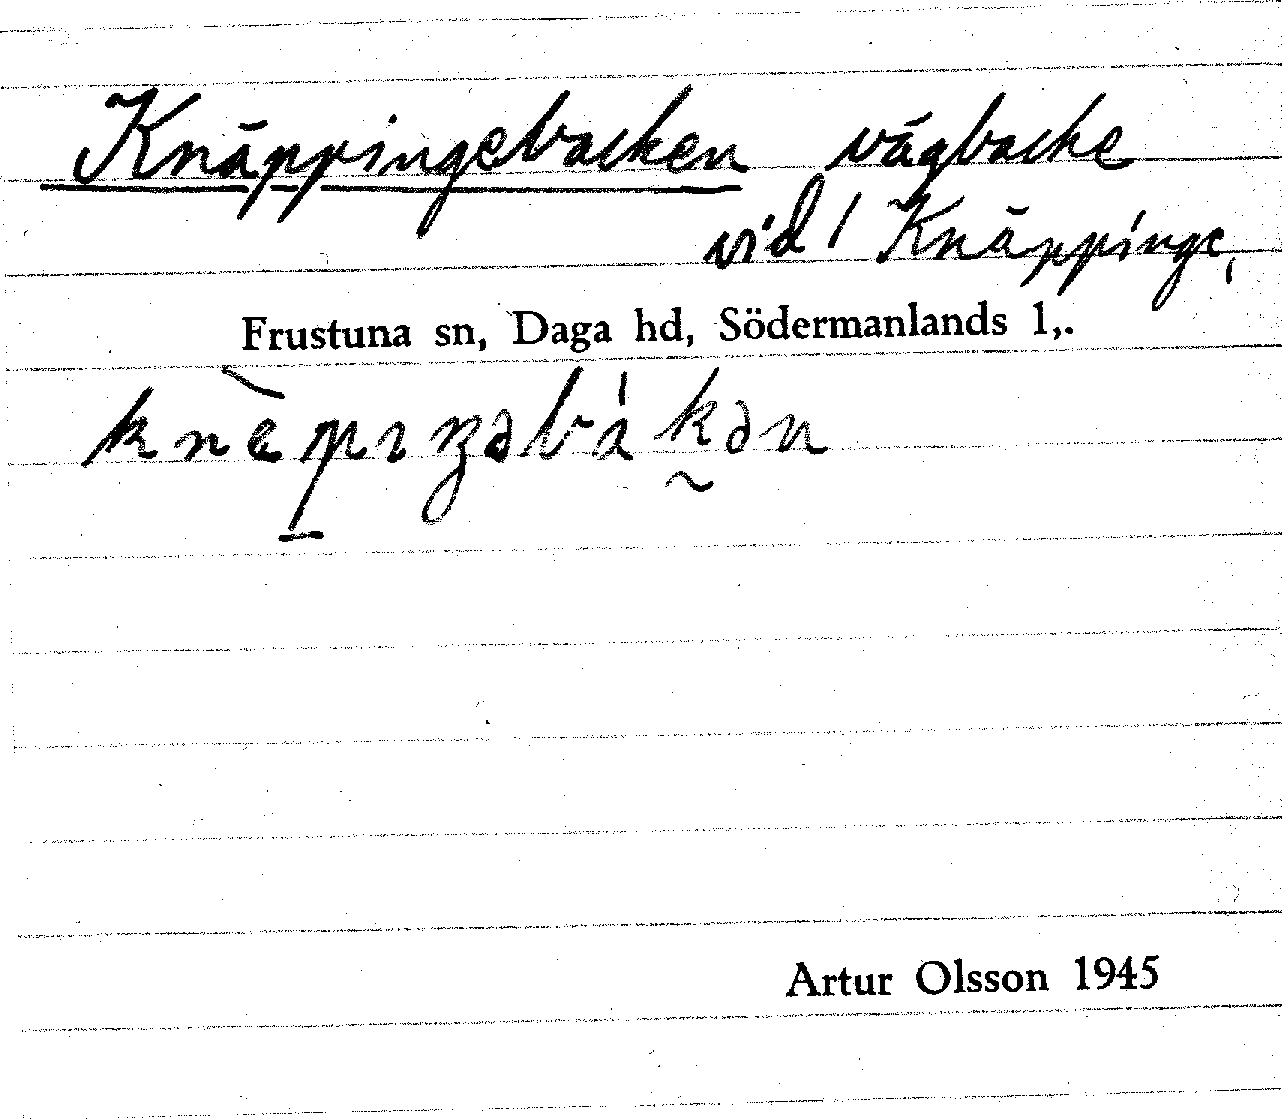 Knäppingebacken vägbacke
vid 1 Knäppinge,
Frustuna sn, Daga hd, Södermanlands l,.
knèpıŋəbákən
Artur Olsson 1945